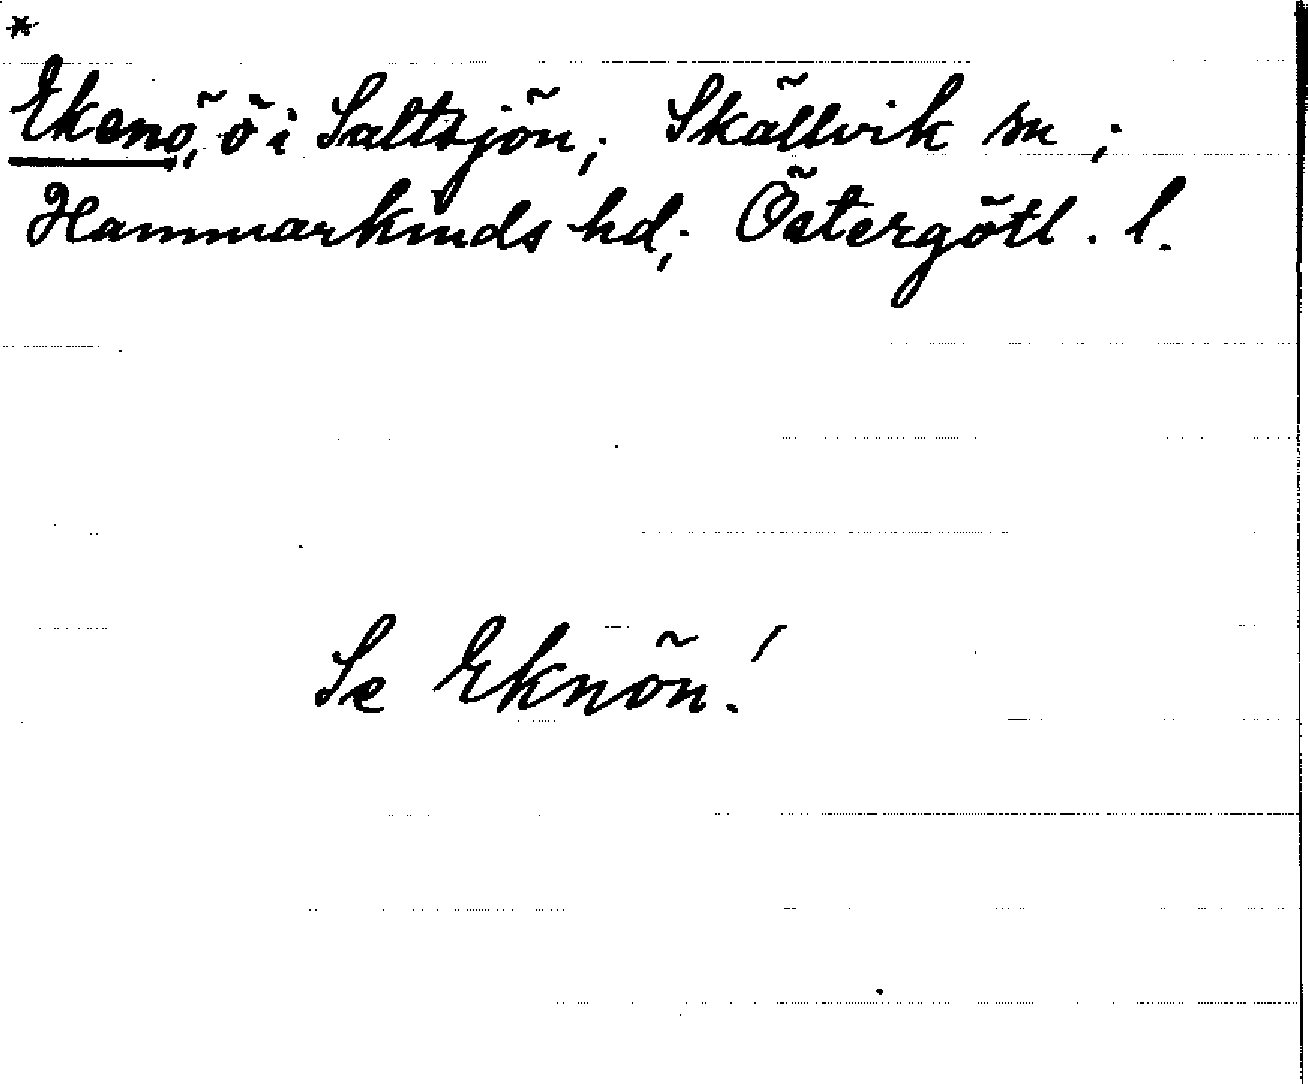 *
Ekenö, ö i Saltsjön; Skällvik sn;
Hammarkinds hd; Östergötl. l.
Se Eknön!